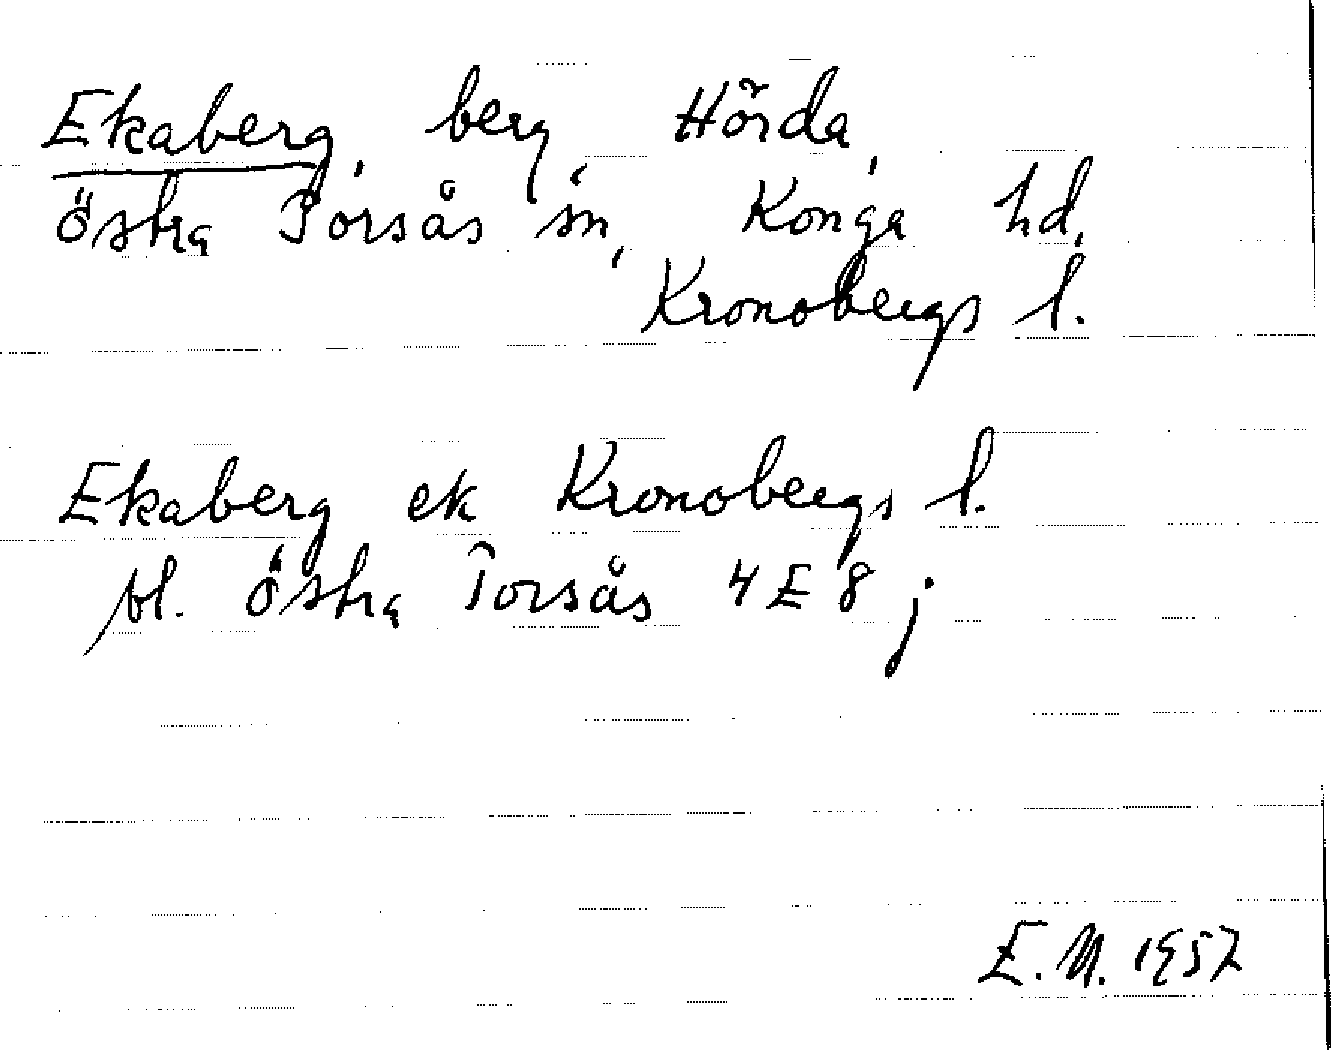 Ekaberg, berg, Hörda,
Östra Torsås sn, Konga hd,
Kronobergs l.
Ekaberg ek Kronobergs l.
bl. Östra Torsås 4 E 8 j
E. N. 1957